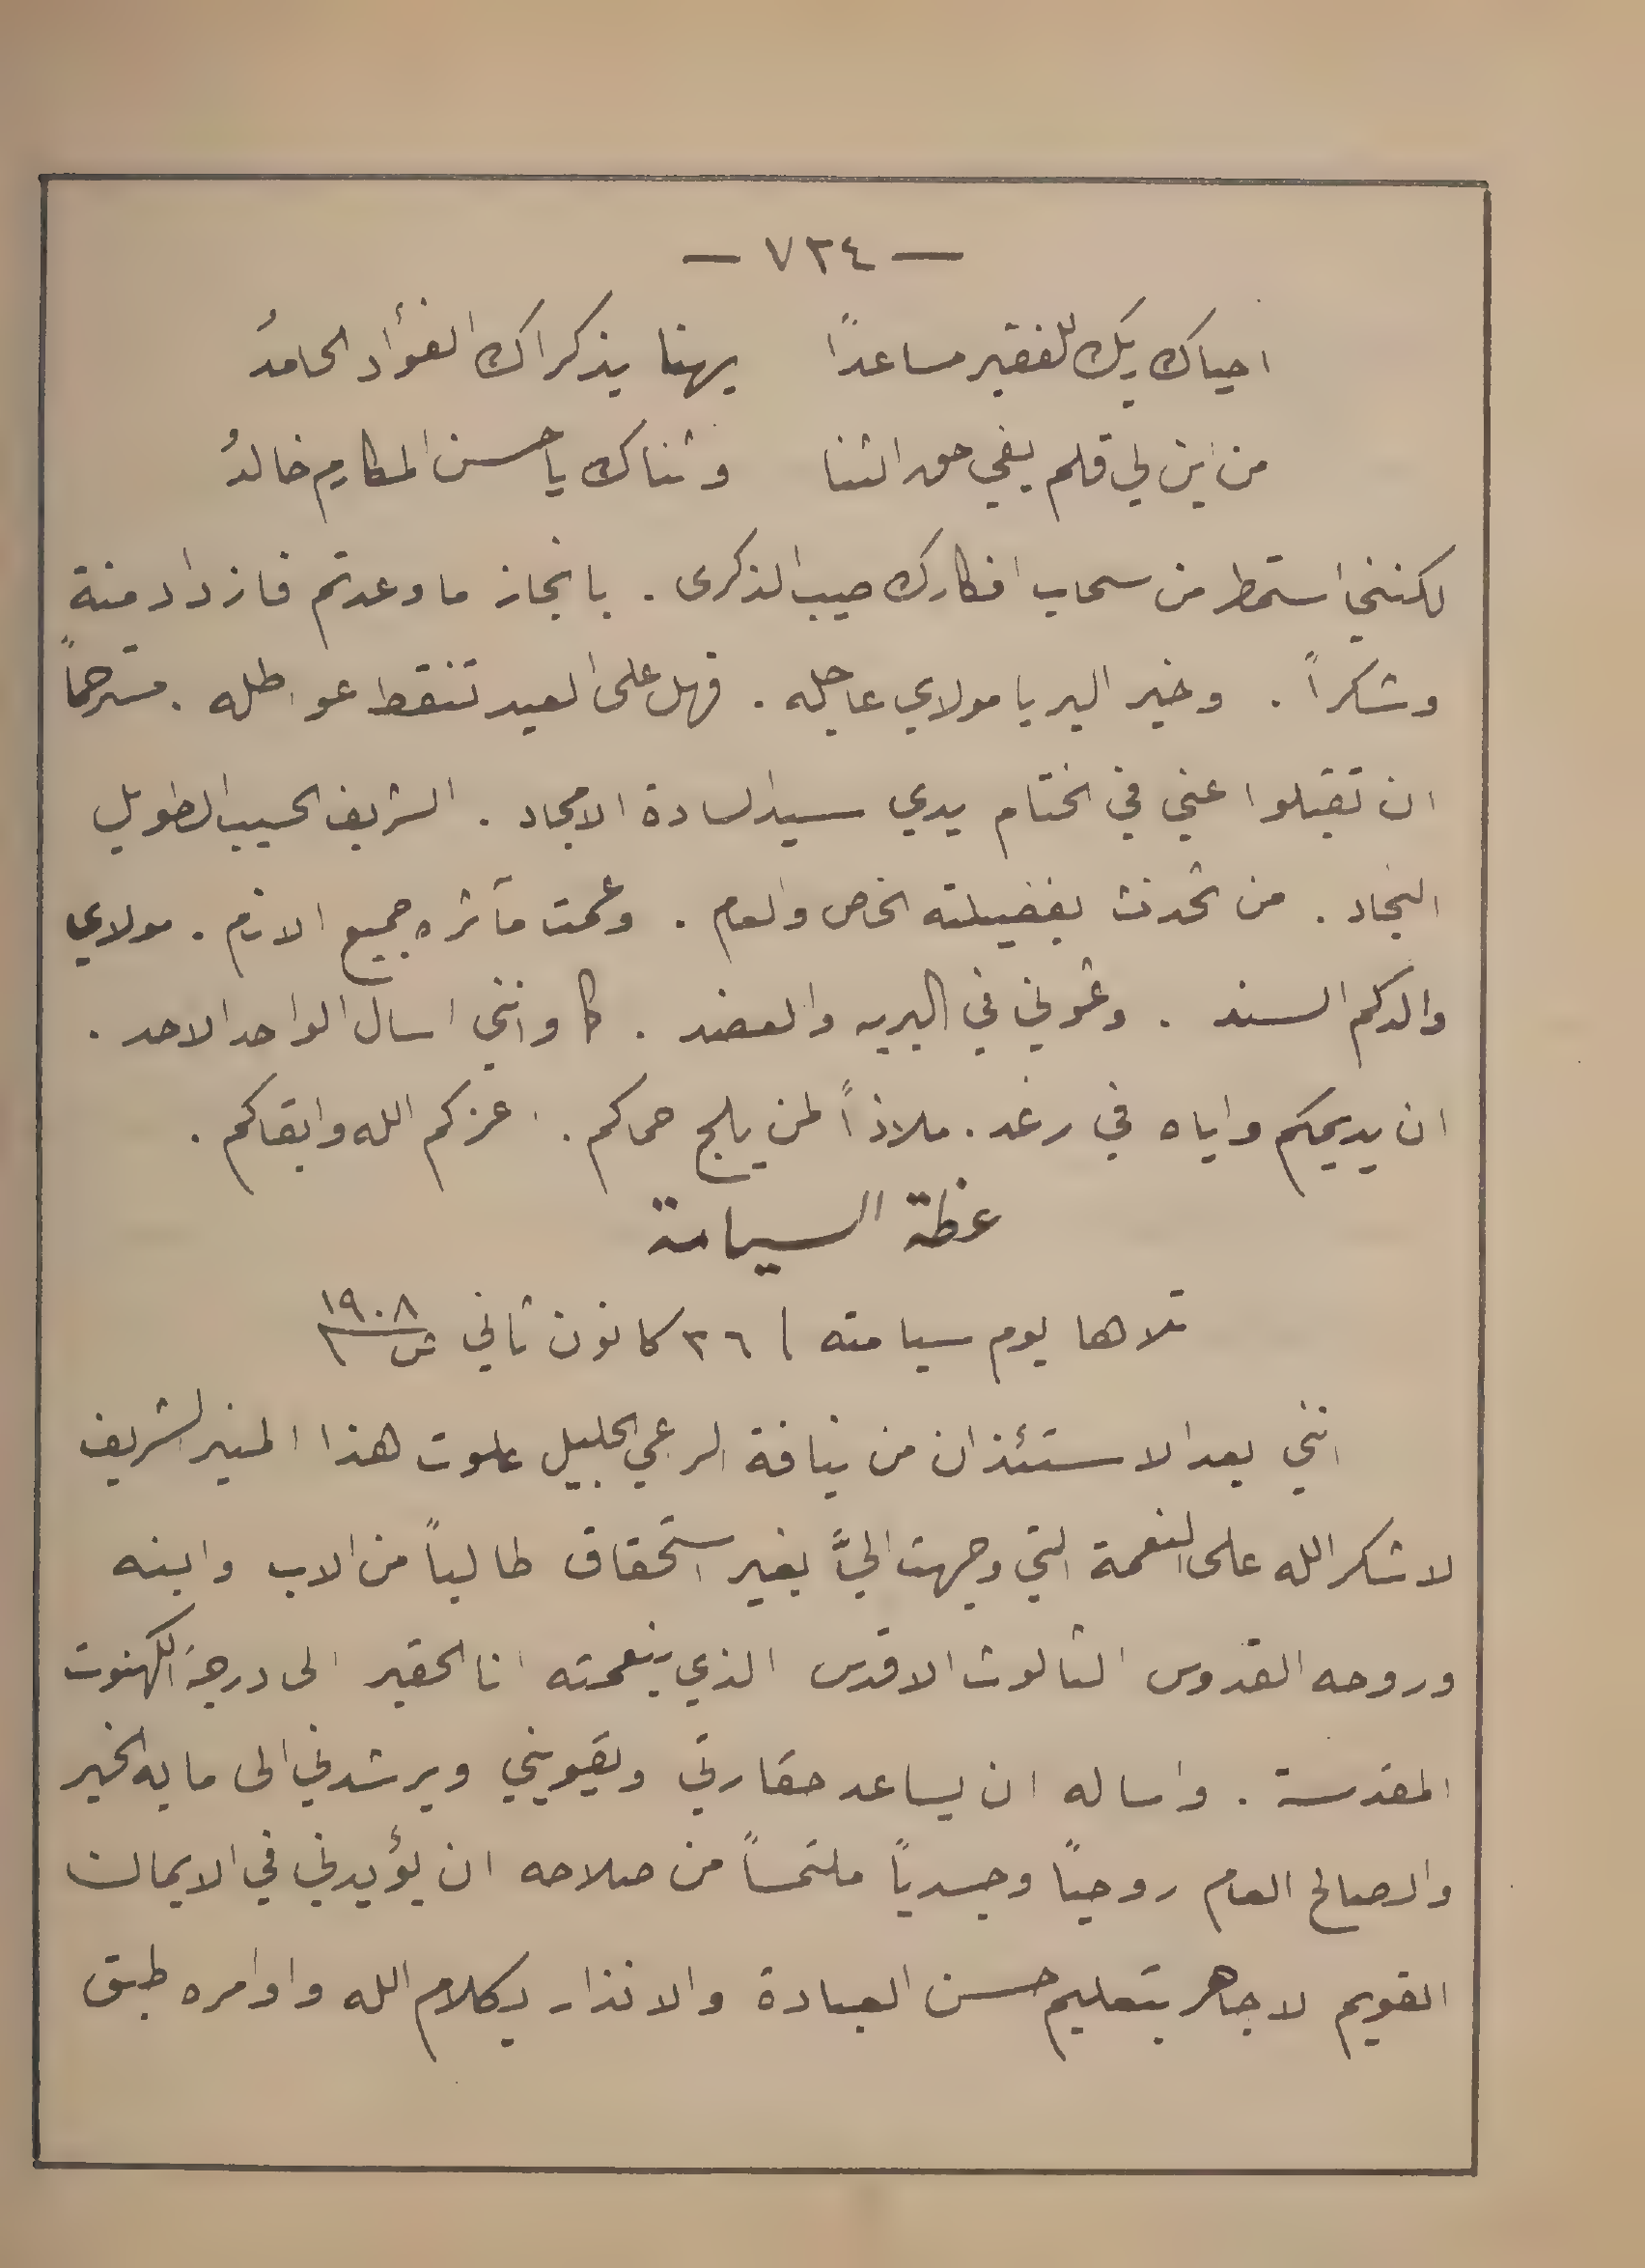 — ٧٢٤ —
احياك ربك للفقير مساعداً يهنا بذكراك الفؤاد الحامدُ
من اين لي قلم يفي حق الثنا وثناك يا حسن المكارم خالدُ
لكنني استمطر من سحاب افكارك صيب الذكرى . بانجاز ما وعدتم فازداد منة
وشكراً . وخير البر يا مولاي عاجله . فهل على العبد تنقط هواطله . مسترحماً
ان تقبلوا عني في الختام يدي سيد السادة الامجاد . الشريف الحسيب الطويل
النجاد . من تحدثت بفضيلته الخاص والعام . وعمت مآثره جميع الانام . مولاي
والدكم السند . وغوثي في البريه والعضد . كما وانني اسال الواحد الاحد .
ان يديمكم واياه في رغد . ملاذاً لمن يلج حماكم . اعزكم الله وابقاكم .
عظة السيامة
تلاها يوم سيامته ا ٢٦ كانون ثاني ش ١٩٠٨
انني بعد الاستئذان من نيافة الراعي الجليل علوت هذا المنبر الشريف
لاشكر الله على النعمة التي وجهت اليَّ بغير استحقاق طالباً من الاب وابنه
وروحه القدوس الثالوث الاقدس الذي بنعمته انا الحقير الى درجة الكهنوت
المقدسة . واساله ان يساعد حقارتي ويقويني ويرشدني الى ما به الخير
والصالح العام روحياً وجسدياً ملتمساً من صلاحه ان يؤيدني في الايمان
القويم لاجاهر بتعليم حسن العبادة والانذار بكلام الله واوامره طبق